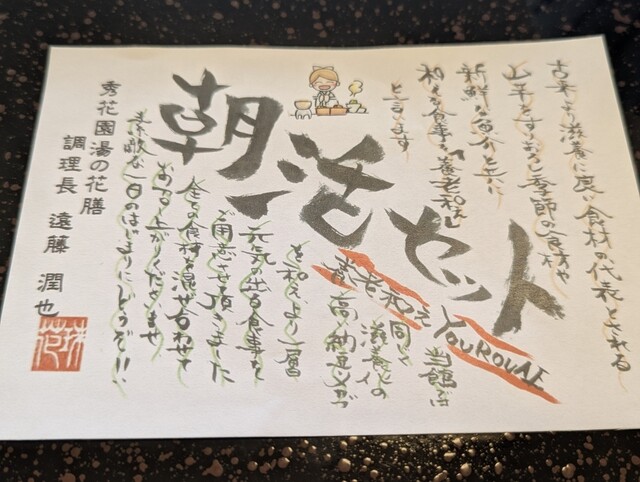 古来より滋養に良い食材の代表とされる
山芋をすりおろし季節の食材や
新鮮な魚介と共に
和える食事を「養老和え」
と言います
朝活セット
養老和え
YOUROUAE
当館では
同じく
滋養
高い納豆メカブ
を和え、より一層
元気の出る食事を
ご用意させて頂きました
全ての食材を混ぜ合わせて
お召し上がりくださいませ
素敵な一日のはじまりにどうぞ!!
秀花園湯の花膳
調理長 遠藤 潤也